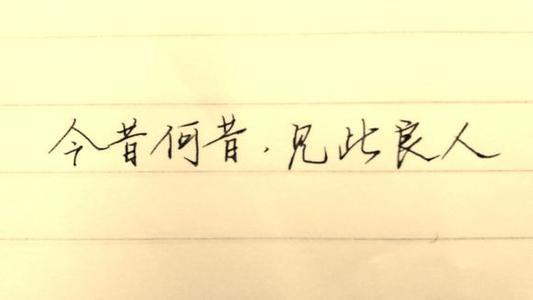 今昔何昔,见此良人